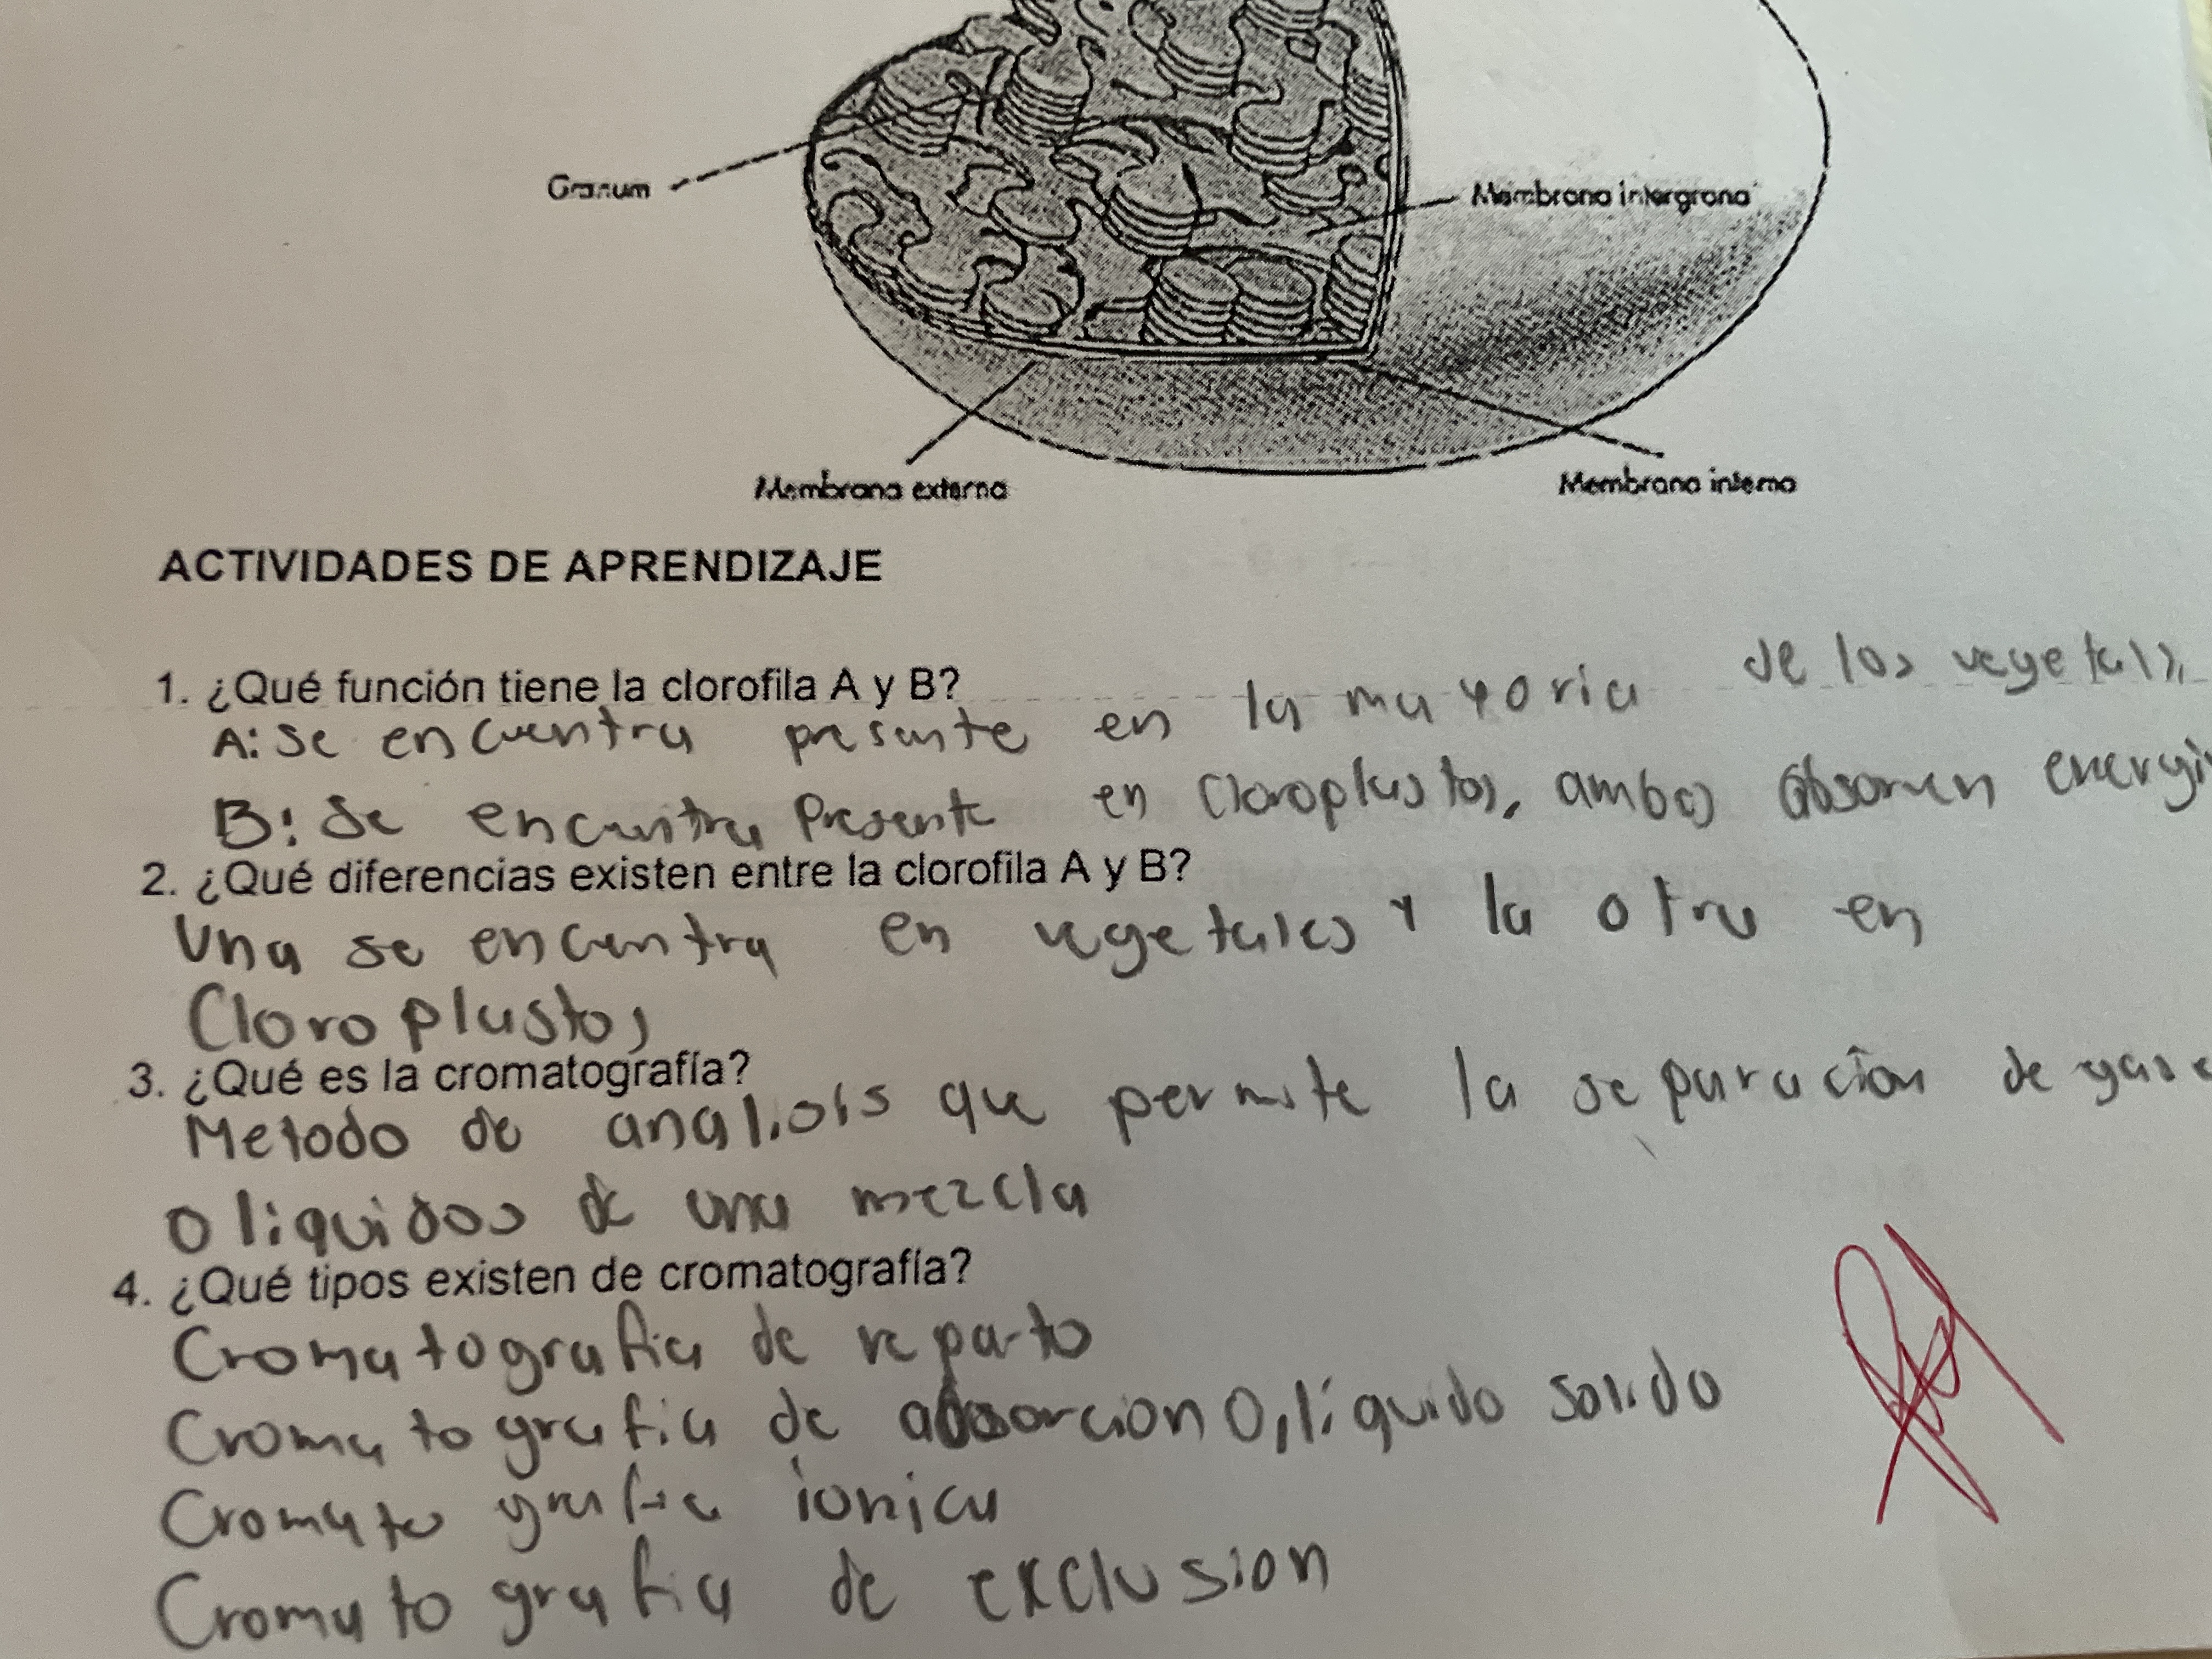 Granum
Membrana intergrana
Membrana externa
Membrana interna
ACTIVIDADES DE APRENDIZAJE
1. ¿Qué función tiene la clorofila A y B?
A: Se encuentra presente en la mayoria de los vegetales
B: Se encuentra Presente en Cloroplastos, ambos absorven
2. ¿Qué diferencias existen entre la clorofila A y B?
Una se encuentra en vegetales y la otra en
Cloroplastos
3. ¿Qué es la cromatografía?
Metodo de analisis que permite la separación de
o liquidos de una mezcla
4. ¿Qué tipos existen de cromatografía?
Cromatografia de reparto
Cromatografia de adsorcion o, líquido solido
Cromatografia ionica
Cromatografia de exclusion